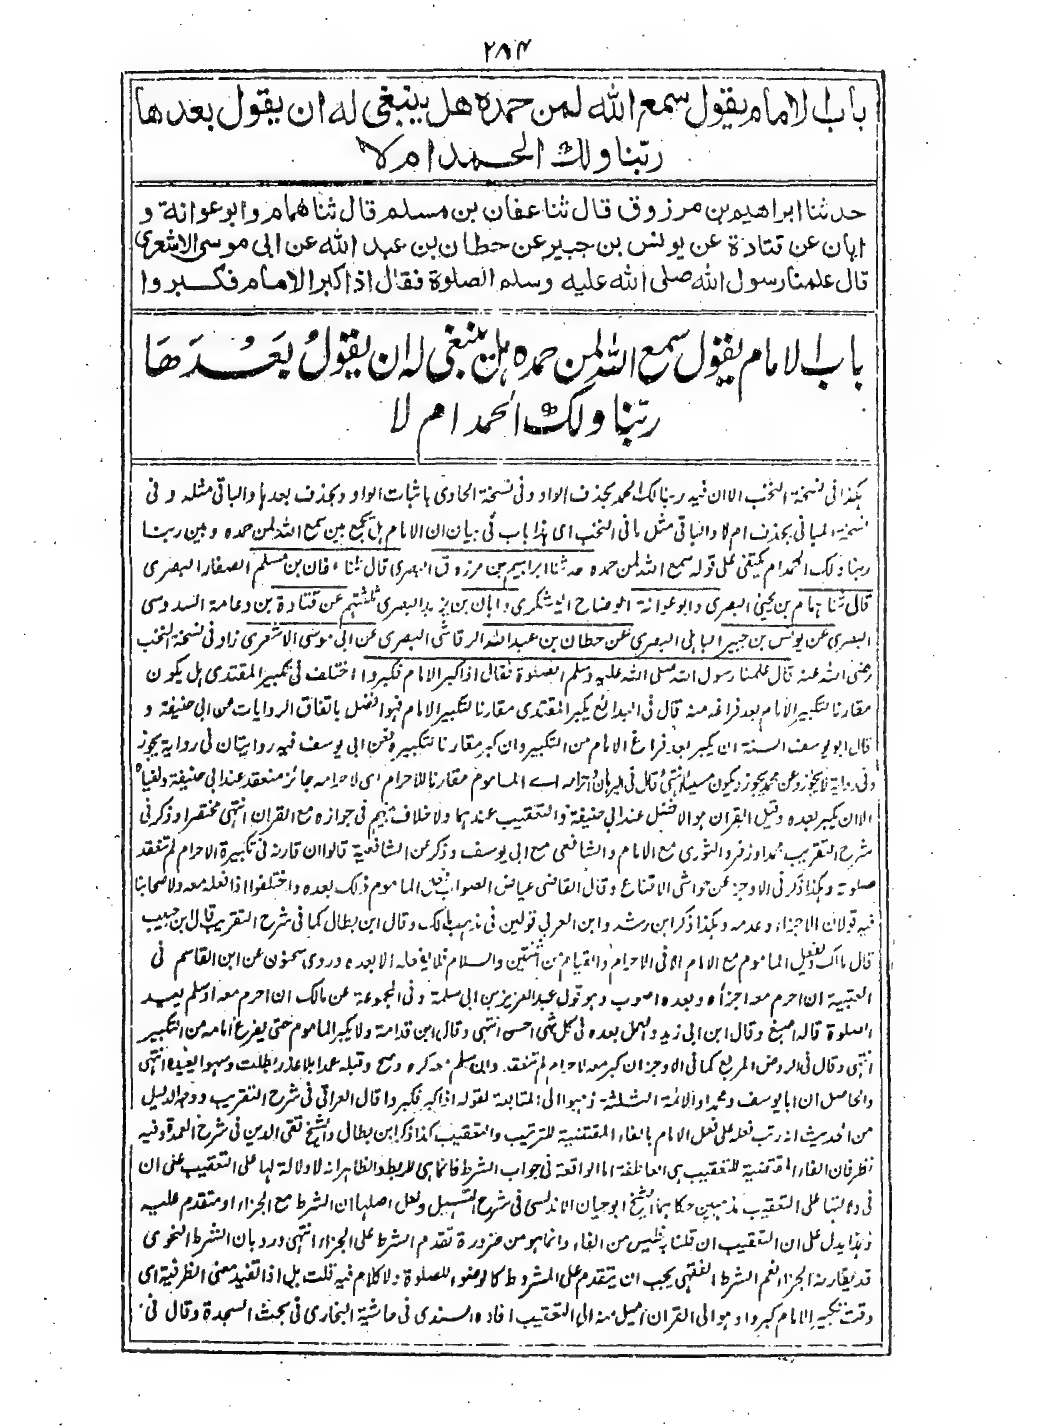 ٢٨٤
باب الامام يقول سمع الله لمن حمده هل ينبغى له ان يقول بعدها
ربنا ولك الحمد ام لا
حدثنا ابراهيم بن مرزوق قال ثنا عفان بن مسلم قال ثنا همام وابو عوانة و
ابان عن قتادة عن يونس بن جبير عن حطان بن عبد الله عن ابى موسى الاشعرى
قال علمنا رسول الله صلى الله عليه وسلم الصلوة فقال اذا كبر الامام فكبروا
باب الامام يقول سمع الله لمن حمده هل ينبغى له ان يقول بعدها
ربنا ولك الحمد ام لا
هكذا فى نسخة النخب الا ان فيه ربنا لك الحمد بحذف الواو وفى نسخة الحاوى باثبات الواو وبحذف بعدها والباقى مثله وفى
نسخة المبانى بحذف ام لا والباقى مثل ما فى النخب اى هذا باب فى بيان ان الامام هل يجمع بين سمع الله لمن حمده وبين ربنا
ربنا ولك الحمد ام يكتفى على قوله سمع الله لمن حمده حدثنا ابراهيم بن مرزوق البصرى قال ثنا عفان بن مسلم الصفار البصرى
قال ثنا همام بن يحيى البصرى وابو عوانة الوضاح اليشكرى وابان بن يزيد البصرى ثلثتهم عن قتادة بن دعامة السدوسى
البصرى عن يونس بن جبير الباهلى البصرى عن حطان بن عبد الله الرقاشى البصرى عن ابى موسى الاشعرى زاد فى نسخة النخب
رضى الله عنه قال علمنا رسول الله صلى الله عليه وسلم الصلوة فقال اذا كبر الامام فكبروا اختلف فى تكبير المقتدى هل يكون
مقارنا لتكبير الامام بعد فراغه منه قال فى البدائع يكبر المقتدى مقارنا لتكبير الامام فهو افضل باتفاق الروايات عن ابى حنيفة و
قال ابو يوسف السنة ان يكبر بعد فراغ الامام من التكبير وان كبر مقارنا لتكبيره فعن ابى يوسف فيه روايتان فى رواية يجوز
وفى رواية لا يجوز وعن محمد يجوز ويكون مسيئا انتهى قال فى البرهان احرامه اے الماموم مقارنا للاحرام اى لاحرامه جائز منعقد عند ابى حنيفة ولغياه
الا ان يكبر بعده وقيل القران هو الافضل عند ابى حنيفة والتعقيب عندهما ولا خلاف بينهم فى جوازه مع القران انتهى مختصرا وذكر فى
شرح التقريب محمدا وزفر والثورى مع الامام والشافعى مع ابى يوسف وذكر عن الشافعية قالوا ان قارنه فى تكبيرة الاحرام لم تنعقد
صلوته وهكذا ذكر فى الاوجز عن حواشى الاقناع وقال القاضى عياض الصواب فعل الماموم ذلك بعده واختلفوا اذا فعله معه ولاصحابنا
فيه قولان الاجزاء وعدمه وهكذا ذكر ابن رشد وابن العربى قولين فى مذهب مالك وقال ابن بطال كما فى شرح التقريب قال ابن حبيب
قال مالك يفعل الماموم مع الامام الا فى الاحرام والقيام من اثنتين والسلام فلا يفعله الا بعده وروى سحنون عن ابن القاسم فى
العتبية ان احرم معه اجزأه وبعده اصوب وهو قول عبد العزيز بن ابى سلمة وفى المجموعة عن مالك ان احرم معه او سلم يعيد
الصلوة قاله اصبغ وقال ابن ابى زيد والعمل بعده فى كل شئ احسن انتهى وقال ابن قدامة ولا يكبر الماموم حتى يفرغ امامه من التكبير
انتهى وقال فى الروض المربع كما فى الاوجز ان كبر معه لاحرام لم تنعقد وان سلم معه كره وصح وقبله عمدا بلا عذر بطلت وسهوا يعيده انتهى
والحاصل ان ابا يوسف ومحمدا والائمة الثلثة ذهبوا الى المتابعة لقوله اذا كبر فكبروا قال العراقى فى شرح التقريب ووجه الدليل
من الحديث انه رتب فعله على فعل الامام بالفاء المقتضية للترتيب والتعقيب كذا ذكر ابن بطال والشيخ تقى الدين فى شرح العمدة وفيه
نظر فان الفاء المقتضية للتعقيب هى العاطفة اما الواقعة فى جواب الشرط فانما هى للربط والظاهر انه لا دلالة لها على التعقيب على ان
فى دلالتها على التعقيب مذهبين حكاهما الشيخ ابو حيان الاندلسى فى شرح التسهيل ولعل اصلهما ان الشرط مع الجزاء او متقدم عليه
وهذا يدل على ان التعقيب ان قلنا به فليس من الفاء وانما هو من ضرورة تقدم الشرط على الجزاء انتهى ورد بان الشرط النحوى
قد يقارنه الجزاء نعم الشرط الفقهى يجب ان يتقدم على المشروط كالوضوء للصلوة ولا كلام فيه قلت بل اذا تفيد معنى الظرفية اى
وقت تكبير الامام كبروا وهو الى القران اميل منه الى التعقيب افاده السندى فى حاشية البخارى فى بحث السجدة وقال فى